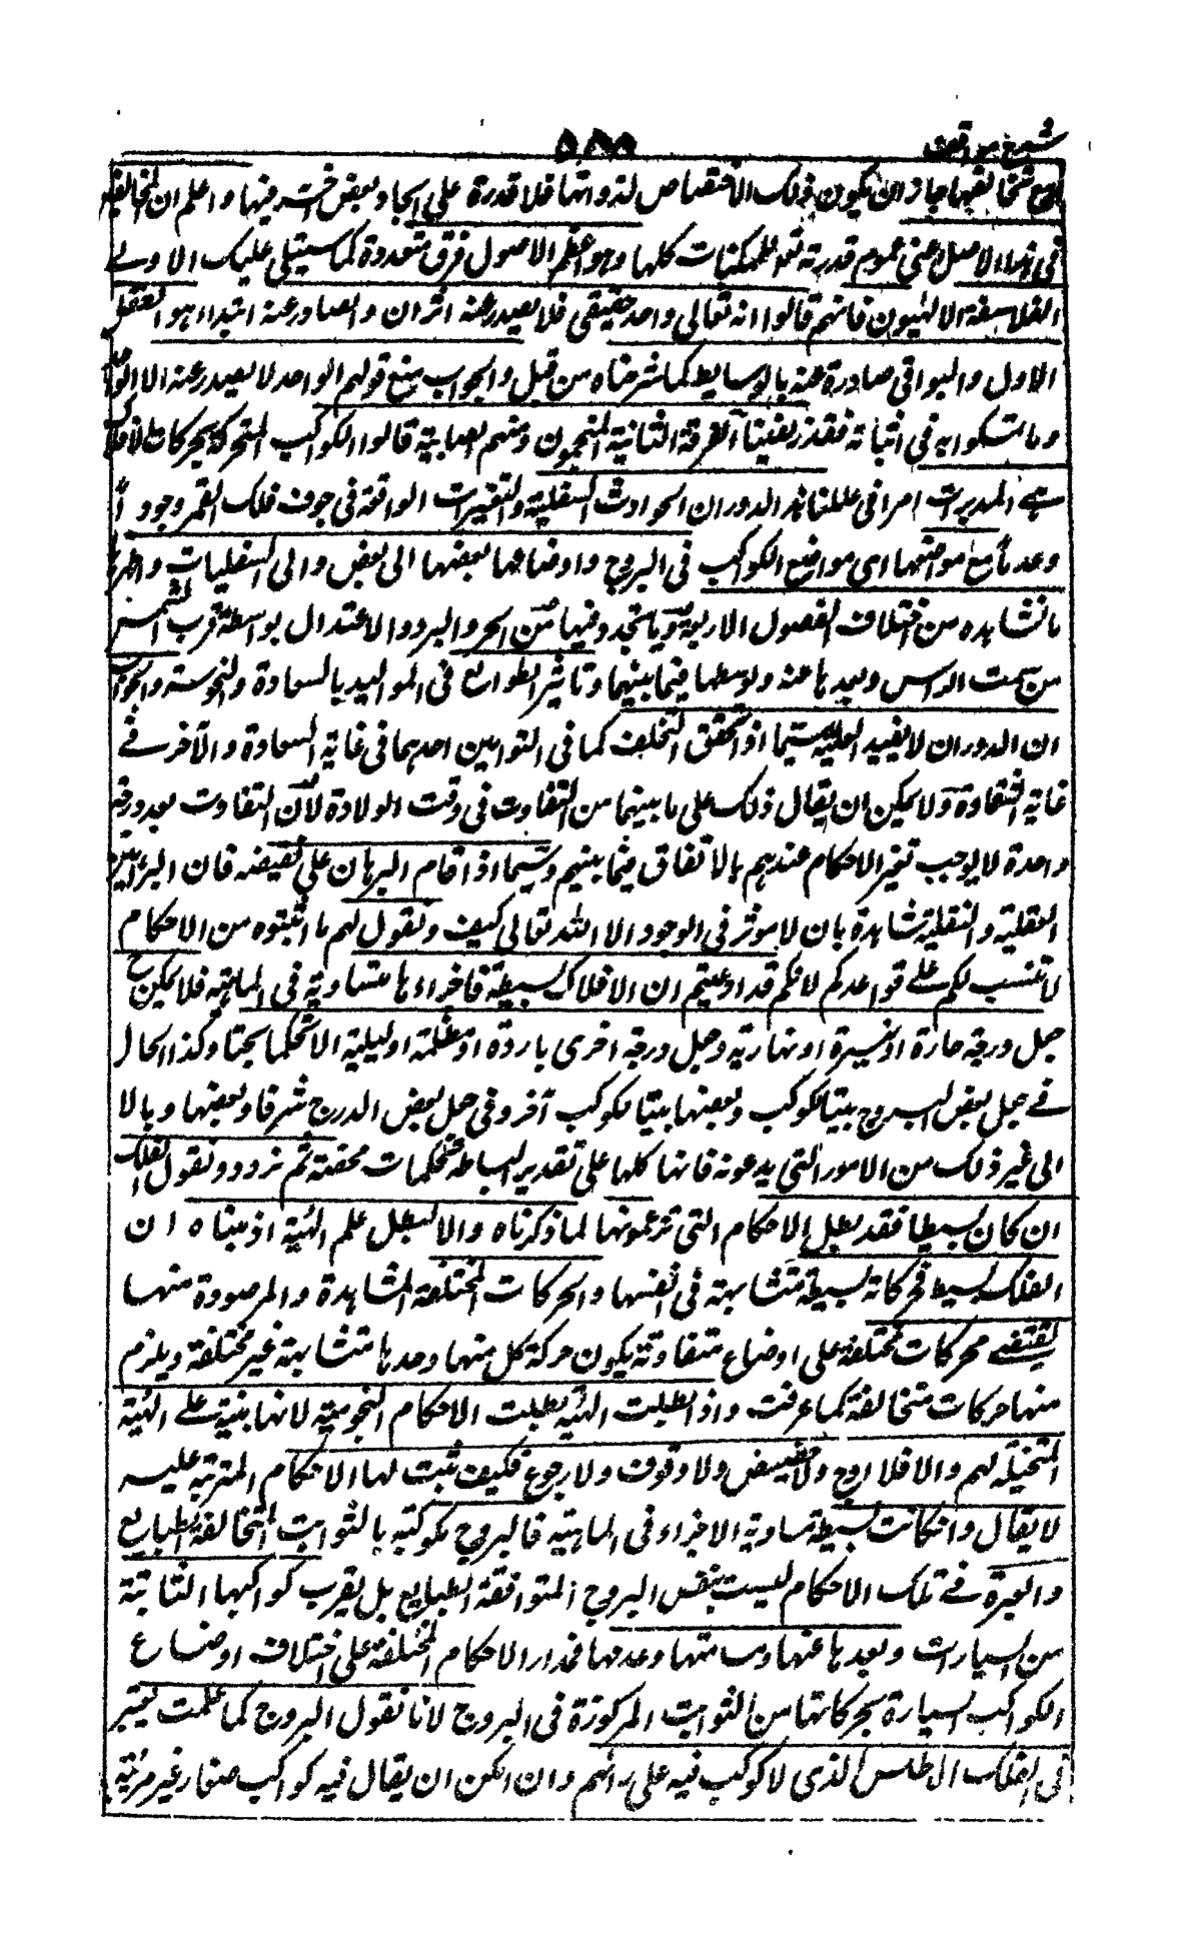 شرح مواقف
٥٨٨
مع تخالفها جاز ان يكون ذلك الاختصاص لذواتها فلا قدرة على ايجاد بعض آخر فيها واعلم ان المخالفين
فى هذا الاصل عنى عموم قدرته تعالى للممكنات كلها وهو اعظم الاصول فرق متعددة كما سيتلى عليك الاولى
الفلاسفة الالهيون فانهم قالوا انه تعالى واحد حقيقى فلا يصدر عنه اثران والصادر عنه ابتداء هو العقل
الاول والبواقى صادرة عنه بالوسايط كما شرحناه من قبل والجواب منع قولهم الواحد لا يصدر عنه الا الواحد
وما تمسكوا به فى اثباته فقد زيفناه الفرقة الثانية المنجمون ومنهم الصابية قالوا الكواكب المتحركة بحركات الافلاك
هى المدبرات امرا فى عالمنا هذا لدوران الحوادث السفلية والتغيرات الواقعة فى جوف فلك القمر وجودا
وعدما مع مواضعها اى مواضع الكواكب فى البروج واوضاعها بعضها الى بعض والى السفليات واظهرها
ما نشاهده من اختلاف الفصول الاربعة وما يتجدد فيها من الحر والبرد والاعتدال بواسطة قرب الشمس
من سمت الراس وبعدها عنه وتوسطها فيما بينهما وتاثير الطوالع فى المواليد بالسعادة والنحوسة والجواب
ان الدوران لا يفيد العلية سيما اذا تحقق التخلف كما فى التوامين احدهما فى غاية السعادة والآخر فى
غاية الشقاوة ولا يمكن ان يقال ذلك على ما بينهما من التفاوت فى وقت الولادة لان التفاوت بقدر درجة
واحدة لا يوجب تغير الاحكام عندهم بالاتفاق فيما بينهم وسيما اذا قام البرهان على نقيضه فان البراهين
العقلية والنقلية شاهدة بان لا موثر فى الوجود الا الله تعالى كيف ونقول لهم ما اثبتوه من الاحكام
لا تنسب لكم على قواعدكم لانكم قد ادعيتم ان الافلاك بسيطة فاجزاءها متساوية فى الماهية فلا يمكن ح
جعل درجة حارة او نيرة او نهارية وجعل درجة اخرى باردة او مظلمة او ليلية الا تحكما بحتا وكذا الحال
فى جعل بعض البروج بيتا لكوكب وبعضها بيتا لكوكب آخر وفى جعل بعض الدرج شرفا وبعضها وبالا
الى غير ذلك من الامور التى يدعونه فانها كلها على تقدير البساطة تحكمات محضة ثم نردد ونقول الفلك
ان كان بسيطا فقد بطل الاحكام التى تزعمونها لما ذكرناه والا لبطل علم الهيئة اذ مبناه ان
الفلك بسيط فحركاته بسيطة متشابهة فى انفسها والحركات المختلفة المشاهدة والمرصودة منها
يقتضى محركات مختلفة على اوضاع متفاوتة يكون حركة كل منها وحدها متشابهة غير مختلفة ويلزم
منها حركات متخالفة كما عرفت واذا بطلت الهيئة بطلت الاحكام النجومية لانها مبنية على الهيئة
المتخيلة لهم والا فلا اوج ولا حضيض ولا وقوف ولا رجوع فكيف ثبت لها الاحكام المترتبة عليه
لا يقال وان كانت بسيطة متساوية الاجزاء فى الماهية فالبروج مكوكبة بالثوابت المتخالفة الطبايع
والعبرة فى تلك الاحكام ليست بنفس البروج المتوافقة الطبايع بل بقرب كواكبها الثابتة
من السيارات وبعدها عنها ومسامتتها وعدمها فمدار الاحكام المختلفة على اختلاف اوضاع
الكواكب السيارة بحركاتها من الثوابت المركوزة فى البروج لانا نقول البروج كما علمت تعتبر
فى الفلك الاطلس الذى لا كوكب فيه على رائهم وان امكن ان يقال فيه كواكب صغار غير مرئية